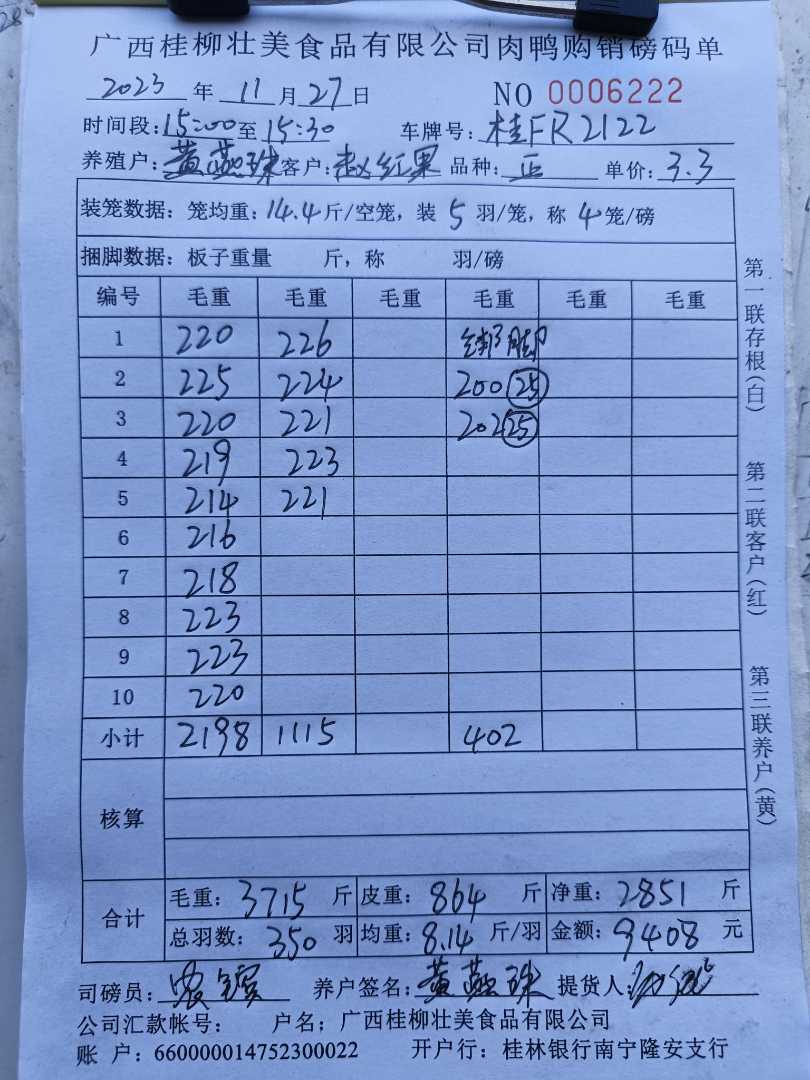 广西桂柳壮美食品有限公司肉鸭购销磅码单
2023 年 11 月 27 日 NO 0006222
时间段: 15:00 至 15:30 车牌号: 桂FR2122
养殖户: 黄燕珠 客户: 赵红果 品种: 正 单价: 3.3
装笼数据: 笼均重: 14.4 斤/空笼, 装 5 羽/笼, 称 4 笼/磅
捆脚数据: 板子重量 斤, 称 羽/磅
编号 毛重 毛重 毛重 毛重 毛重 毛重
1 220 226 绑脚
2 225 224 200 25
3 220 221 202 25
4 219 223
5 214 221
6 216
7 218
8 223
9 223
10 220
小计 2198 1115 402
核算
合计
毛重: 3715 斤 皮重: 864 斤 净重: 2851 斤
总羽数: 350 羽 均重: 8.14 斤/羽 金额: 9408 元
司磅员: 养户签名: 黄燕珠 提货人:
公司汇款帐号: 户名; 广西桂柳壮美食品有限公司
账 户: 660000014752300022 开户行: 桂林银行南宁隆安支行
第一联存根(白)
第二联客户(红)
第三联养户(黄)